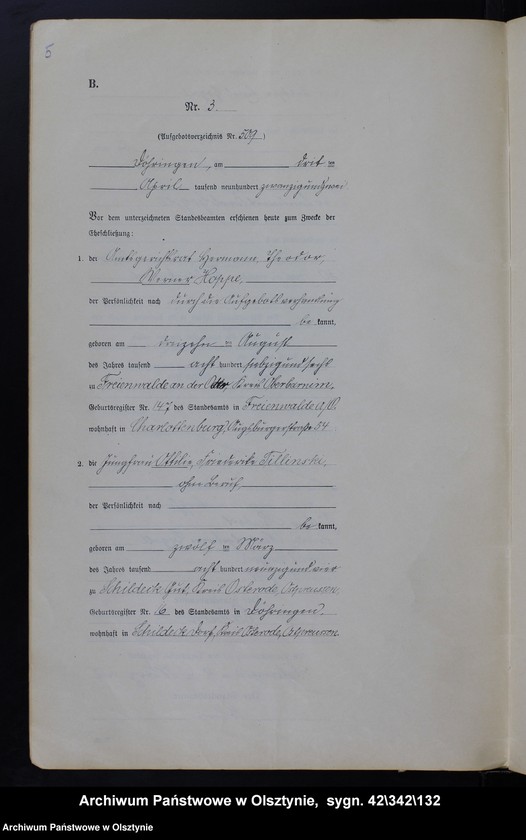 5
B.
Nr. 3.
(Aufgebotsverzeichnis Nr. 509)
Döhringen, am drit ten
April tausend neunhundert zwanzigundzwei
Vor dem unterzeichneten Standesbeamten erschienen heute zum Zwecke der
Eheschließung:
1. der Amtsgerichtsrat Hermann, Theodor,
Werner Hoppe,
der Persönlichkeit nach durch die Aufgebotsverhandlung
be kannt,
geboren am dreizehn ten August
des Jahres tausend acht hundert siebzigundsechs
zu Freienwalde an der Oder, Kreis Oberbarnim,
Geburtsregister Nr. 147 des Standesamts in Freienwalde a/O.
wohnhaft in Charlottenburg, Augsburgerstraße 54
2. die Jungfrau Ottilie, Friederike
ohne Beruf
der Persönlichkeit nach
be kannt,
geboren am zwölf ten März
des Jahres tausend acht hundert neunzigundvier
zu Schildeck Gut, Kreis Osterode, Ostpreussen,
Geburtsregister Nr. 6 des Standesamts in Döhringen.
wohnhaft in Schildeck Dorf, Kreis Osterode, Ostpreussen.
Archiwum Państwowe w Olsztynie, sygn. 42\342\132
Archiwum Państwowe w Olsztynie